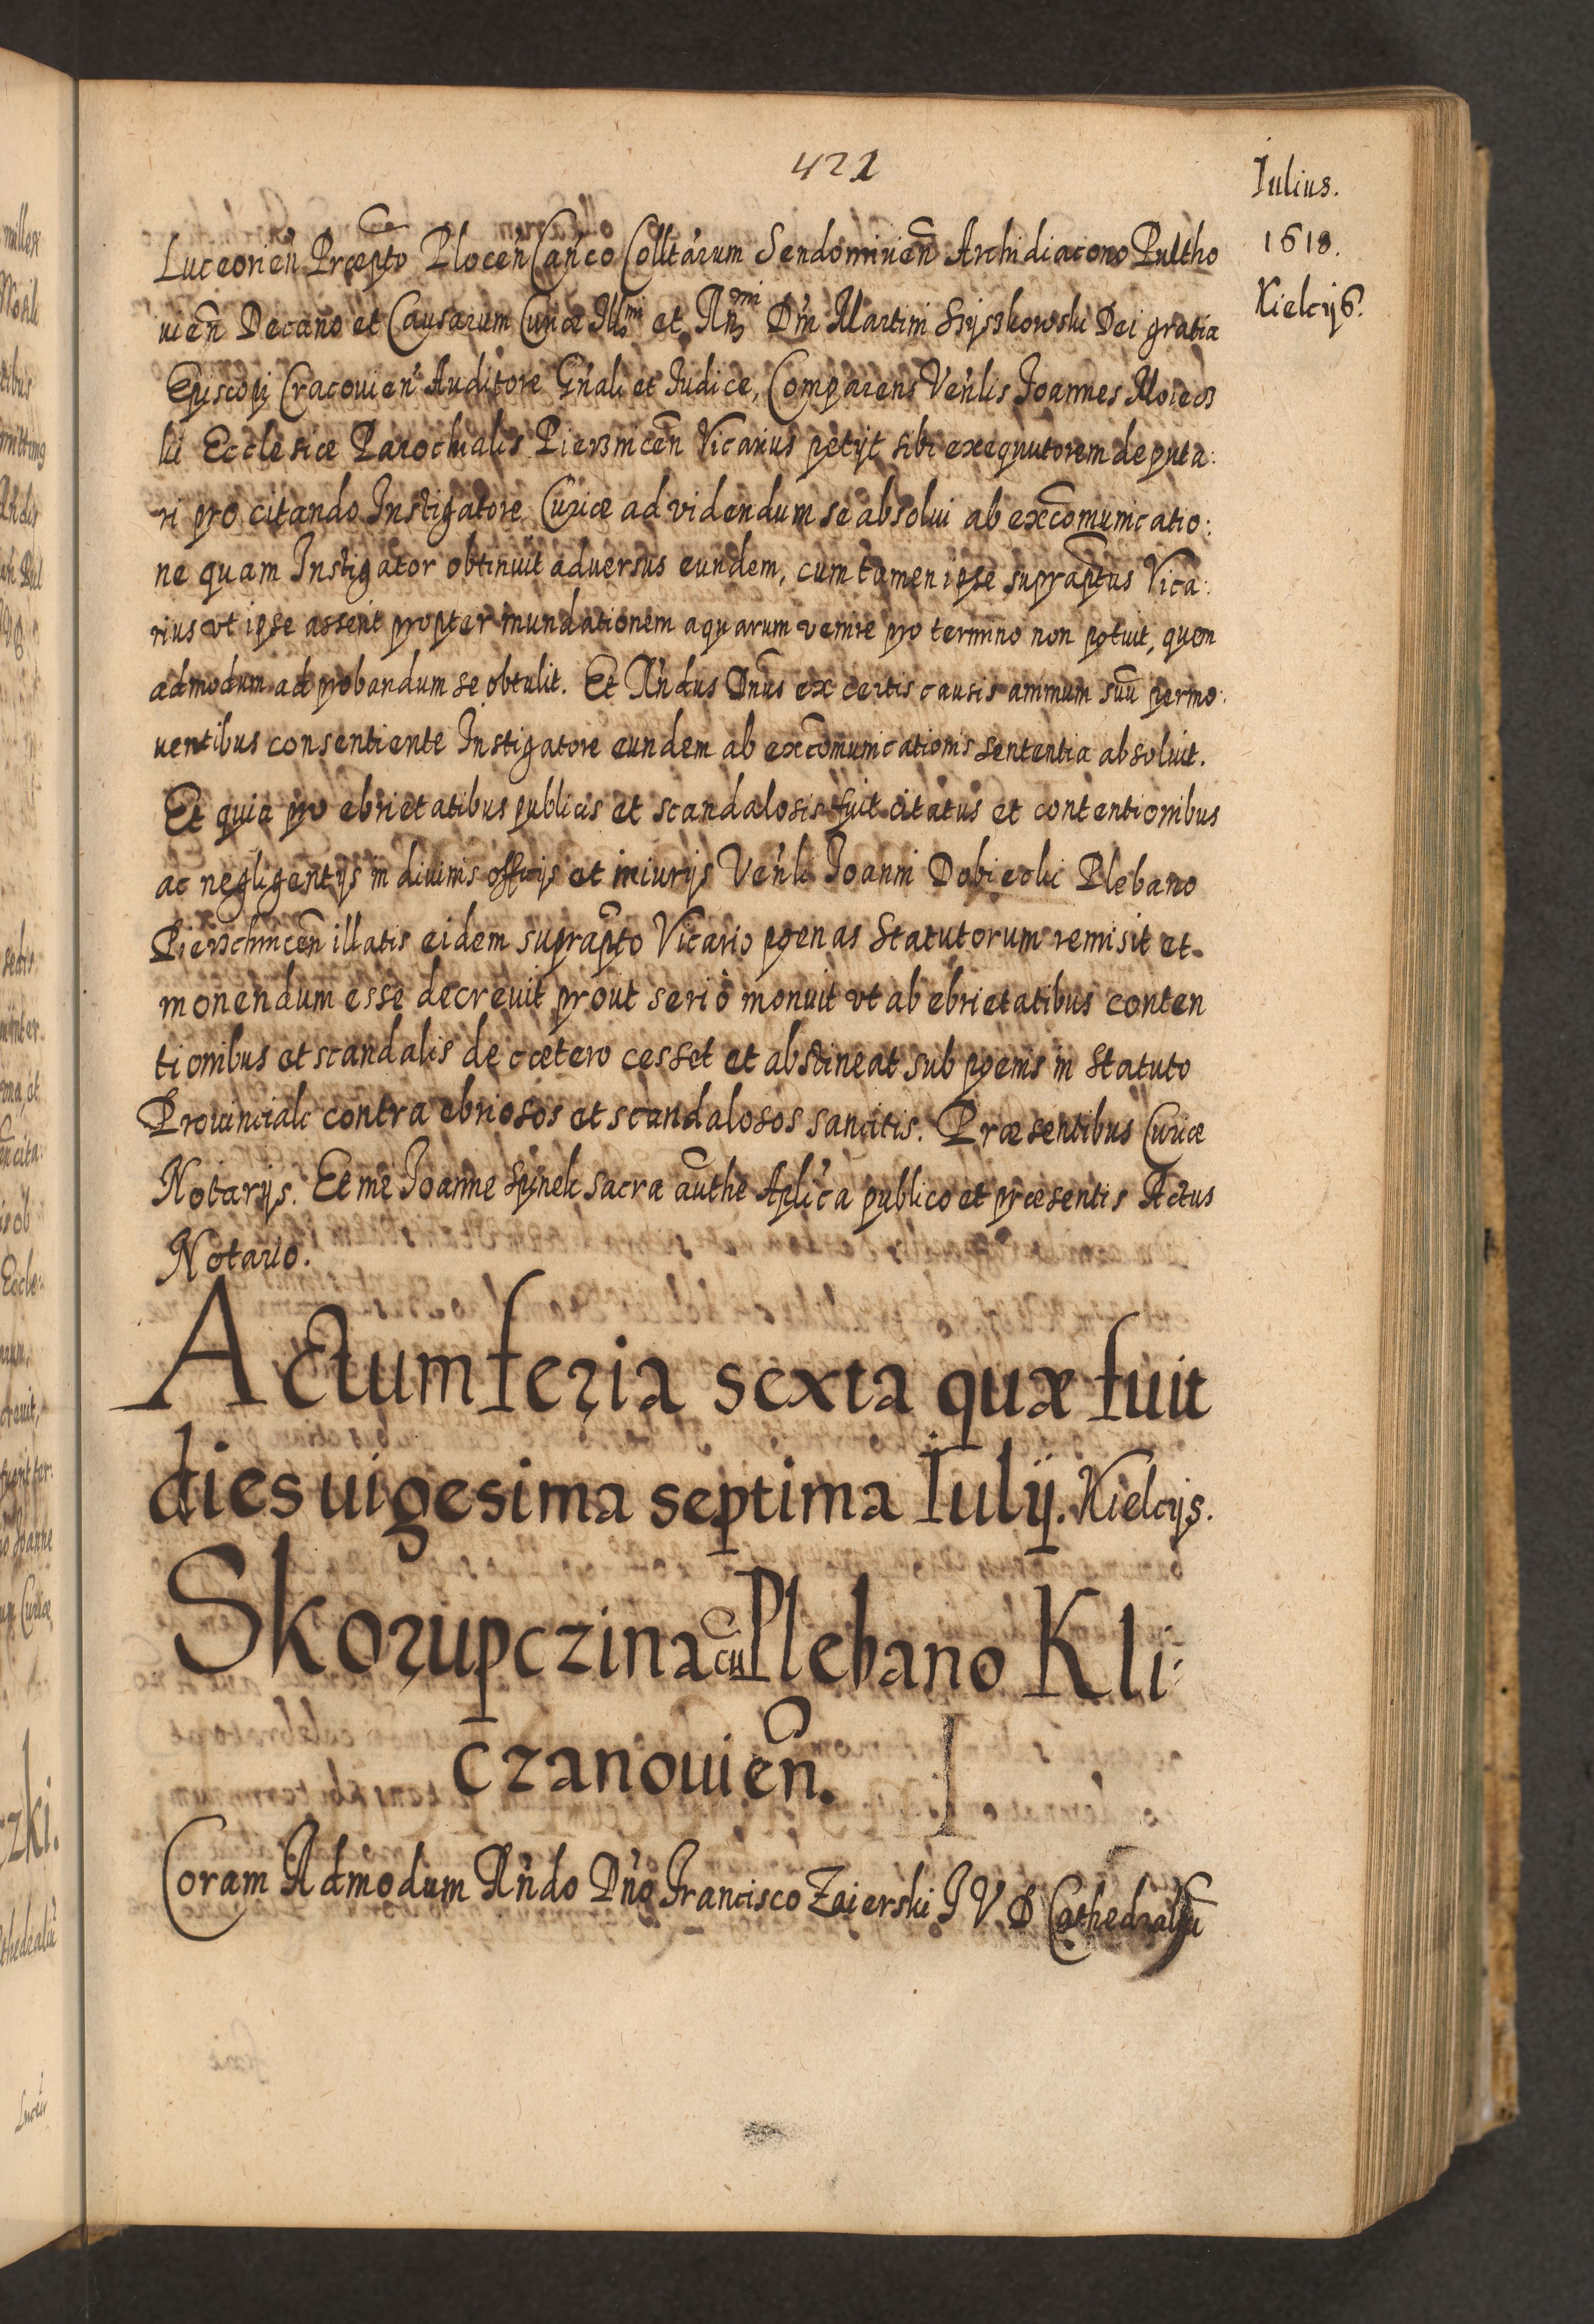 421
Iulius.
1618.
Kielcijs.
Luceorien̄ Præpto Plocen̄ Can̄co Colltārum Sendomirien̄ Archidiacono Pultho
uien̄ Decano et Causarum Curiæ Illmi et Rndmi Dn̄i Martini Szyszkowski Dei gratia
Episcopi Cracouien̄ Auditore Gn̄ali et Iudice, Comparens Ven̄lis Joannes
ski Ecclesiæ Parochialis Pierznicen̄ Vicarius petijt sibi exequutorem deputa:
ri pro citando Instigatore Curiæ ad videndum se absolui ab excōmunicatio:
ne quam Instigator obtinuit aduersus eundem, cum tamen ipse supraptus Vica:
rius vt ipse asserit propter inundationem aquarum venire pro termino non potuit, quem
admodum ad probandum se obtulit. Et Rn̄dus Dn̄us ex certis causis animum suū permo:
uentibus consentiente Instigatore eundem ab excōmunicationis sententia absoluit.
Et quia pro ebrietatibus publicis et scandalosis fuit citatus et contentionibus
ac negligentijs in diuinis officijs et iniurijs Ven̄li Joanni Dobiecki Plebano
Pierzchnicen̄ illatis eidem suprapto Vicario poenas Statutorum remisit et
monendum esse decreuit prout seriò monuit vt ab ebrietatibus conten
tionibus et scandalis de cætero cesset et abstineat sub poenis in Statuto
Prouinciali contra ebriosos et scandalosos sancitis. Præsentibus Curiæ
Notarijs. Et me Joanne Spinek sacra authē Aplica publico et præsentis Actus
Notario.
Actum feria sexta quæ fuit
dies uigesima septima Iulij. Kielcijs.
Skorupczina cū Plebano Kli:
czanouien̄.
Coram Admodum Rn̄do Dn̄o Francisco Zaierski J V D Cathedraliū